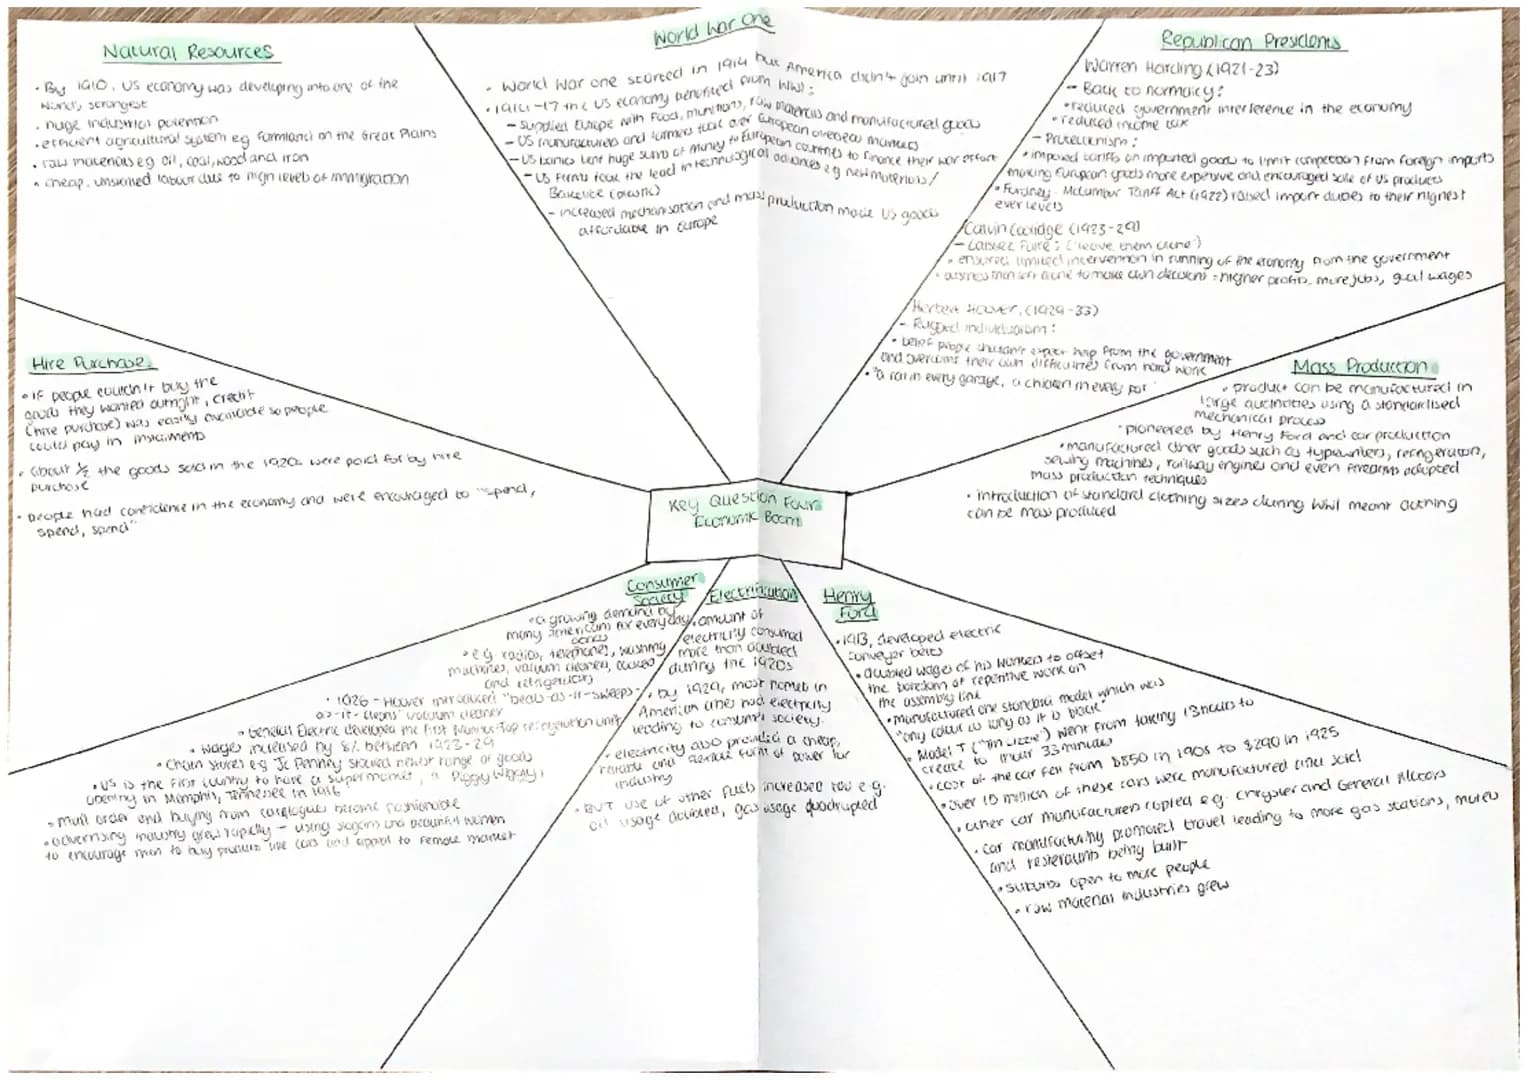 Natural Resources
• By 1910, US economy was developing into one of the
world's strongest
• huge industrial potential
• efficient agricultural system eg farmland on the Great Plains
• raw materials eg oil, coal, wood and iron
• cheap, unskilled labour due to high levels of immigration
World War One
• World War one started in 1914 but America didn't join until 1917
• 1914-17 the US economy benefitted from WWI:
- supplied Europe with food, munitions, raw materials and manufactured goods
- US manufacturers and farmers took over European overseas markets
- US banks lent huge sums of money to European countries to finance their war effort
- US firms took the lead in technological advances eg new materials/
Bakelite (plastic)
- increased mechanisation and mass production made US goods
affordable in Europe
Republican Presidents
Warren Harding (1921-23)
- Back to normalcy:
• reduced government interference in the economy
• reduced income tax
- Protectionism:
• imposed tariffs on imported goods to limit competition from foreign imports
making European goods more expensive and encouraged sale of US products
• Fordney-McCumber Tariff Act (1922) raised import duties to their highest
ever levels
Calvin Coolidge (1923-29)
- Laissez Faire: ('leave them alone')
• ensured limited intervention in running of the economy from the government
• business men left alone to make own decisions = higher profits, more jobs, good wages
Herbert Hoover (1929-33)
- Rugged individualism:
• belief people shouldn't expect help from the government
and overcome their own difficulties from hard work
• "a car in every garage, a chicken in every pot"
Hire Purchase
• If people couldn't buy the
goods they wanted outright, credit
(hire purchase) was easily available so people
could pay in instalments
• about ½ the goods sold in the 1920s were paid for by hire
purchase
• people had confidence in the economy and were encouraged to "spend,
spend, spend"
Mass Production
• product can be manufactured in
large quantities using a standardised
mechanical process
• pioneered by Henry Ford and car production
• manufactured other goods such as typewriters, refrigerators,
sewing machines, railway engines and even firearms adopted
mass production techniques
• introduction of standard clothing sizes during WWI meant clothing
can be mass produced
Key Question Four:
Economic Boom
Consumer
Society
• a growing demand by
many Americans for everyday
goods
• e.g. radios, telephones, washing
machines, vacuum cleaners,
and refrigerators
• 1926 - Hoover introduced "beats-as-it-sweeps-
as-it-cleans" vacuum cleaner
• General Electric developed the first Monitor-Top refrigeration unit
• wages increased by 8% between 1923-29
• Chain stores e.g Jc Penney stocked newer range of goods
• US is the first country to have a supermarket, a Piggy Wiggly,
opening in Memphis, Tennessee in 1916
• mail order and buying from catalogues became fashionable
• advertising industry grew rapidly - using slogans and beautiful women
to encourage men to buy products like cars and appeal to female market
Electrification
• amount of
electricity consumed
more than doubled
during the 1920s
• by 1929, most homes in
American cities had electricity
leading to consumer society.
• electricity also provided a cheap,
reliable and flexible form of power for
industry
• BUT use of other fuels increased too e.g.
oil usage doubled, gas usage quadrupled
Henry
Ford
• 1913, developed electric
conveyer belts
• doubled wages of his workers to offset
the boredom of repetitive work on
the assembly line
• manufactured one standard model which was
"any colour as long as it is black"
• Model T ("Tin Lizzie") went from taking 13 hours to
create to 1 hour 33 minutes
• cost of the car fell from $850 in 1908 to $290 in 1925
• over 15 million of these cars were manufactured and sold
• other car manufacturers copied e.g. Chrysler and General Motors
• car manufacturing promoted travel leading to more gas stations, motels
and resteraunts being built
• suburbs open to more people
• raw material industries grew